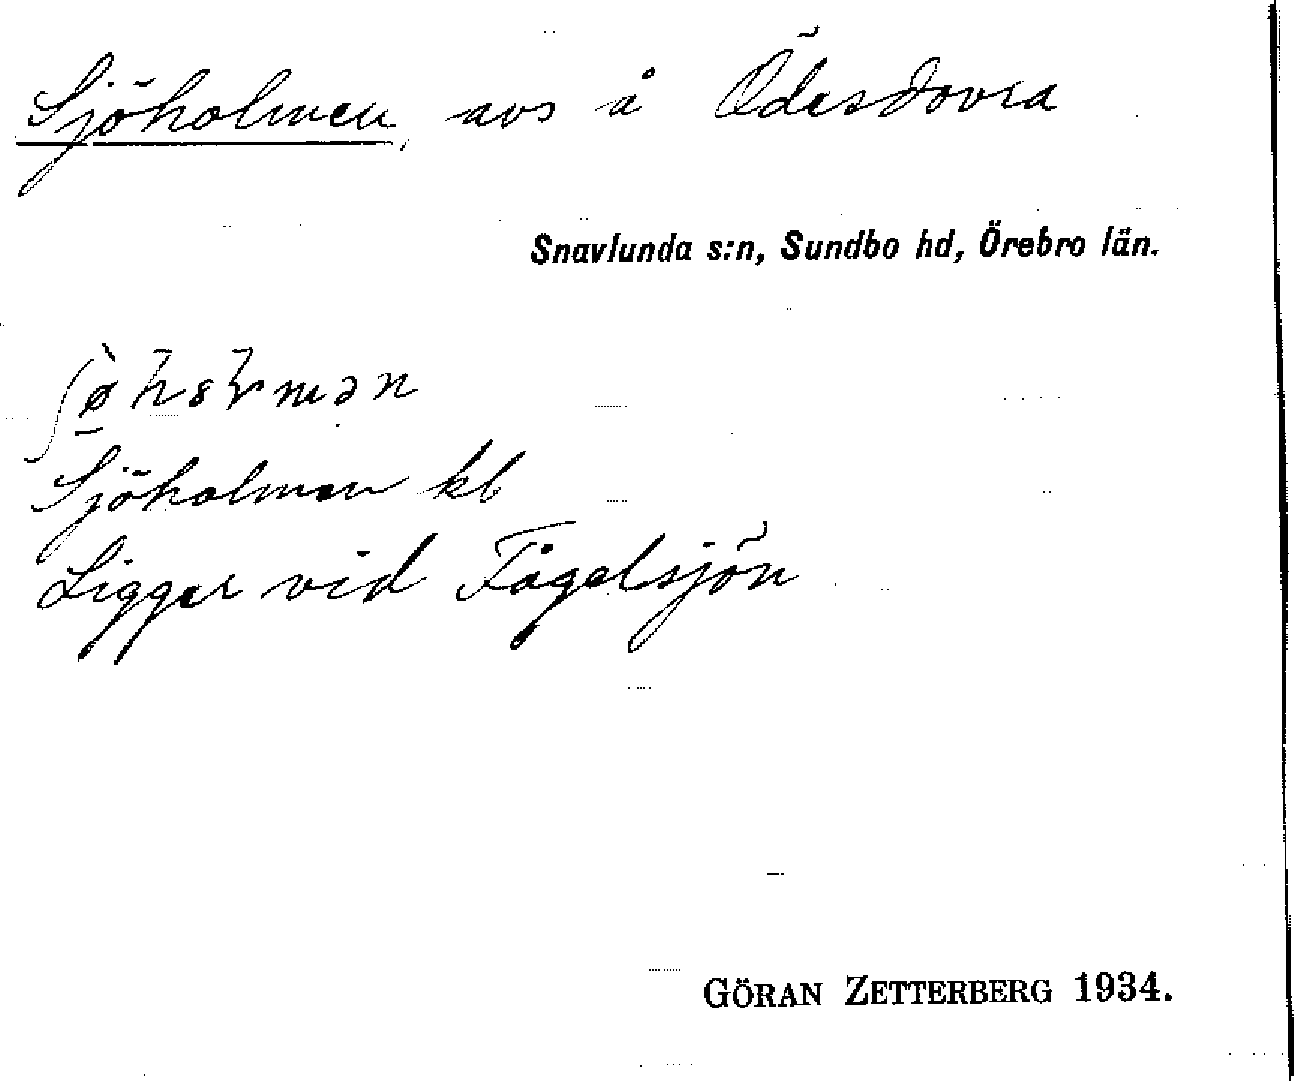 Sjöholmen, avs å Ödesdovra
Snavlunda s:n, Sundbo hd, Örebro län.
Sjöholmen kb
Ligger vid Fågelsjön
GÖRAN ZETTERBERG 1934.